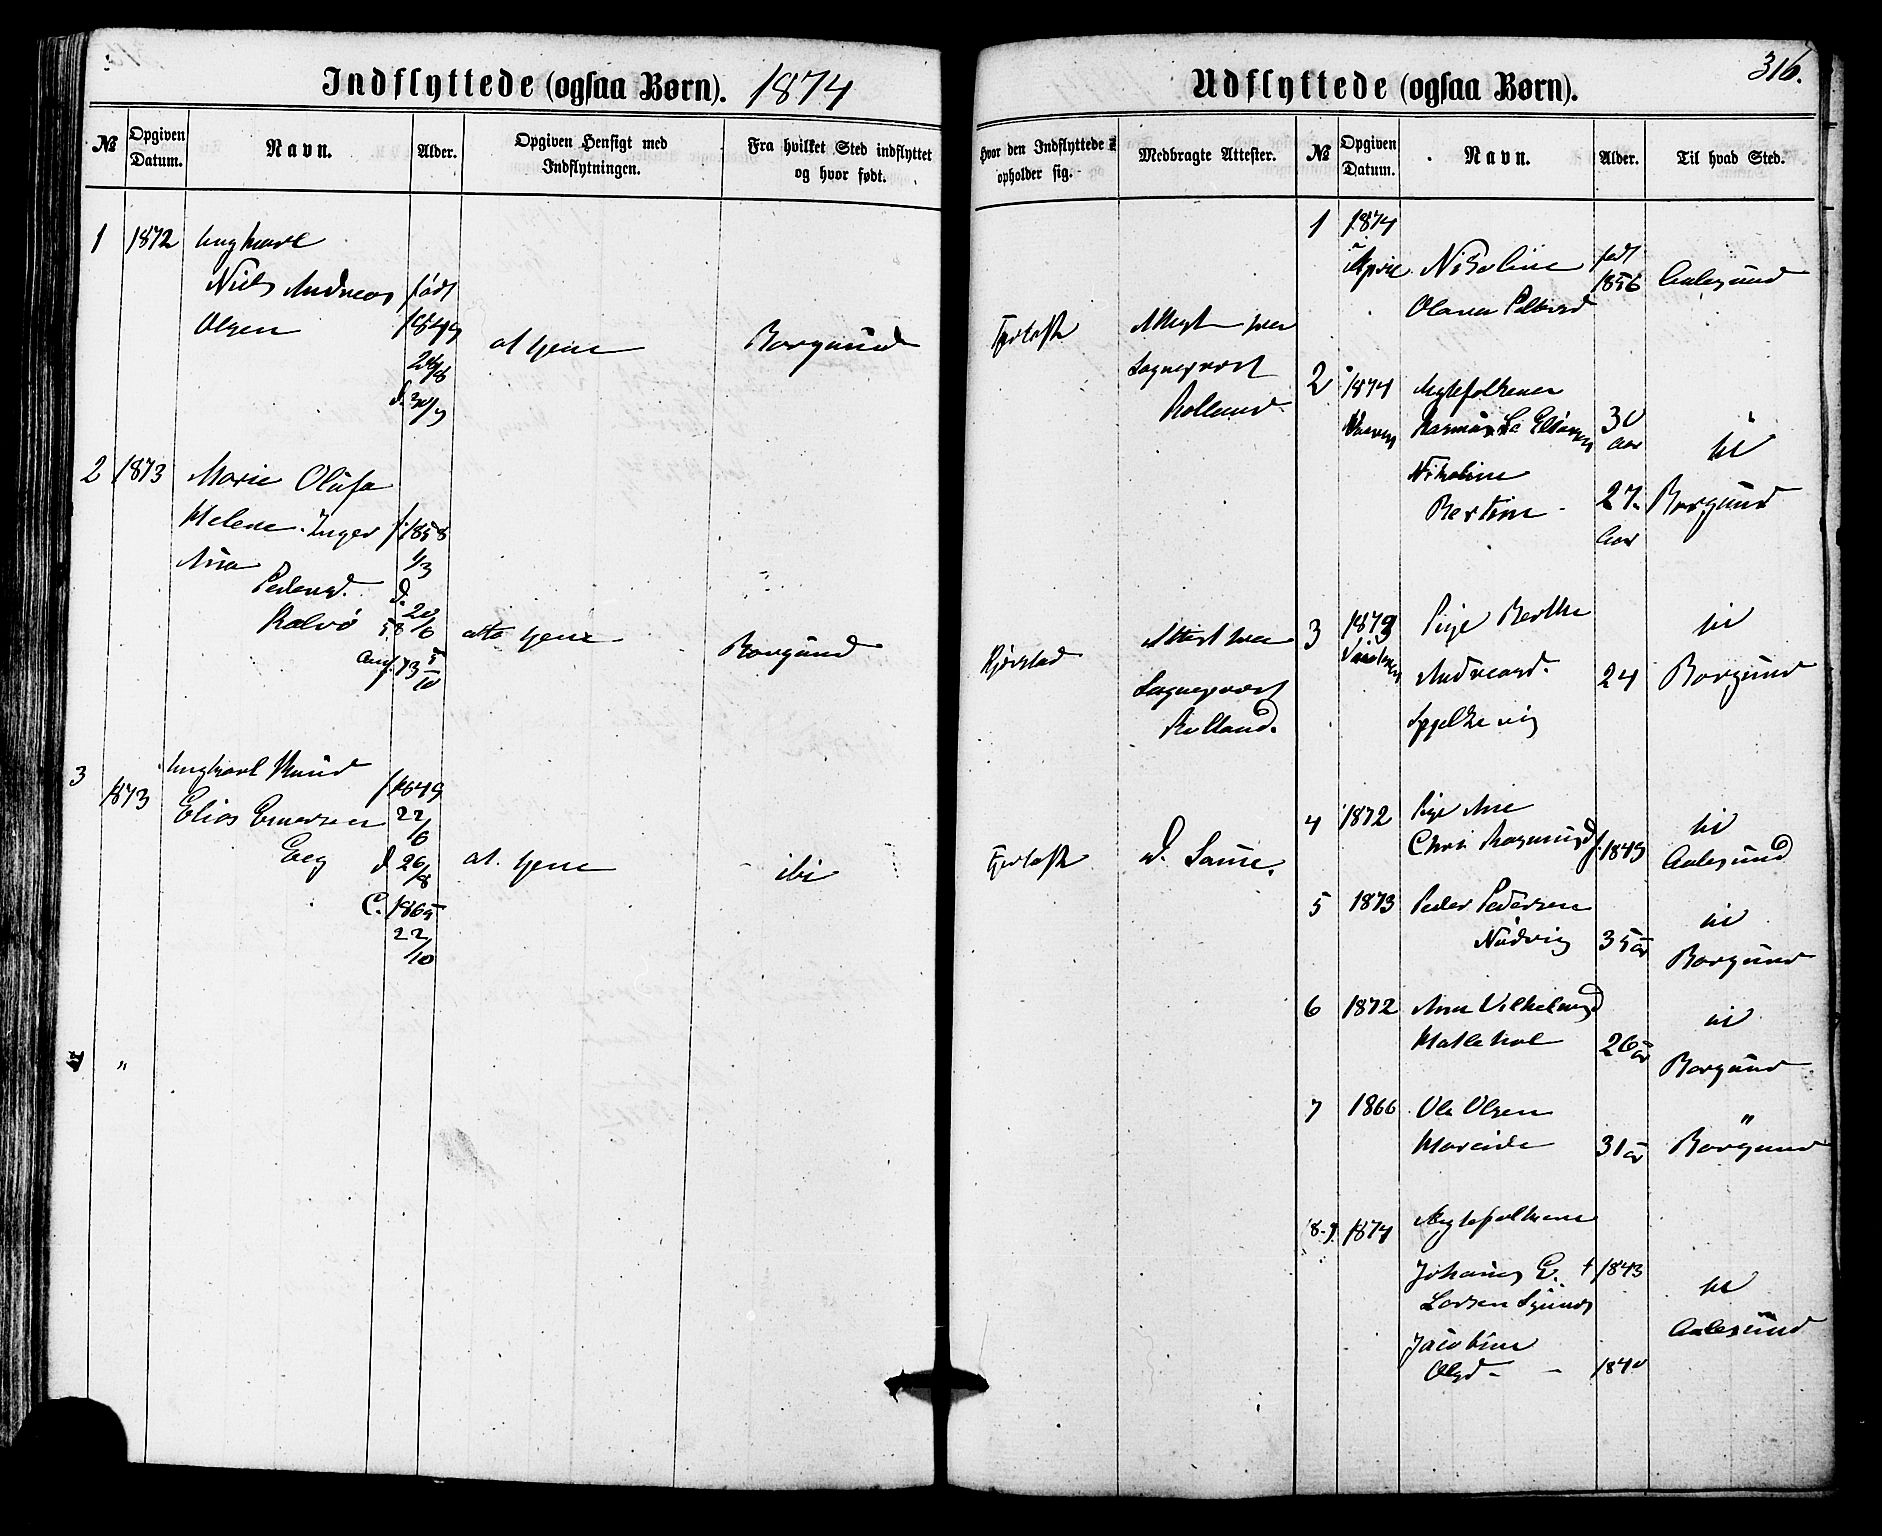 Indflyttede (ogsaa Børn). 1874
№
Opgiven Datum.
Navn.
Alder.
Opgiven Hensigt med Indflytningen.
Fra hvilket Sted indflyttet og hvor født.
1 1872 Ungkarl
Niels Andreas født
Olsen 1849
at tjene Borgund
d. 30/9
2 1873 Marie Olufa
Helene Inger f. 1858
Ana 1/3
Pedersd. d.
Kalvø 20/6
58
at tjene Borgund
Conf. 73 5/10
3 1873 Ungkarl Knud f. 1849
Elias 22/6
d. 26/8
at tjene ibi
C. 1865
22/10
4 "
Udflyttede (ogsaa Børn). 316.
Hvor den Indflyttede opholder sig.
Medbragte Attester.
№
Opgiven Datum.
Navn.
Alder.
Til hvad Sted.
Attest fra
Sogneprest
Rolland.
Attest fra
Sogneprest
Rolland.
d. Samme.
1 1874
April Nikoline født
1856 Aalesund
Olava
2 1874 Ægtefolkene
Rasmus 30
Aar til
Nikoline
Bertine 27 Borgund
Aar
3 1873 Pige Berthe til
Andreasd. 24 Borgund
Spjelkevig
4 1872 Pige Ane til
Rasmusd f. 1849 Aalesund
5 1873 Peder Pedersen til
35 Borgund
6 1872 Ane Vilhelmsd til
26 Borgund
7 1866 Ole Olsen "
Mareide 31 Borgund
8-9 1874 Ægtefolkene
Johannes E. f 1843 til
Larsen
Aalesund
Jacobine
Olsd - - 1840